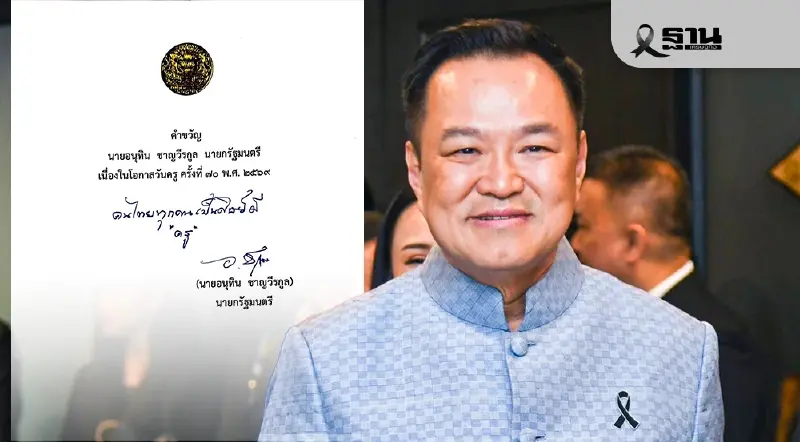 คำขวัญ
นายอนุทิน ชาญวีรกูล นายกรัฐมนตรี
เนื่องในโอกาสวันครู ครั้งที่ ๗๐ พ.ศ. ๒๕๖๙
คนไทยทุกคนเป็นศิษย์มี
"ครู"
(นายอนุทิน ชาญวีรกูล)
นายกรัฐมนตรี
ฐาน
เศรษฐกิจ